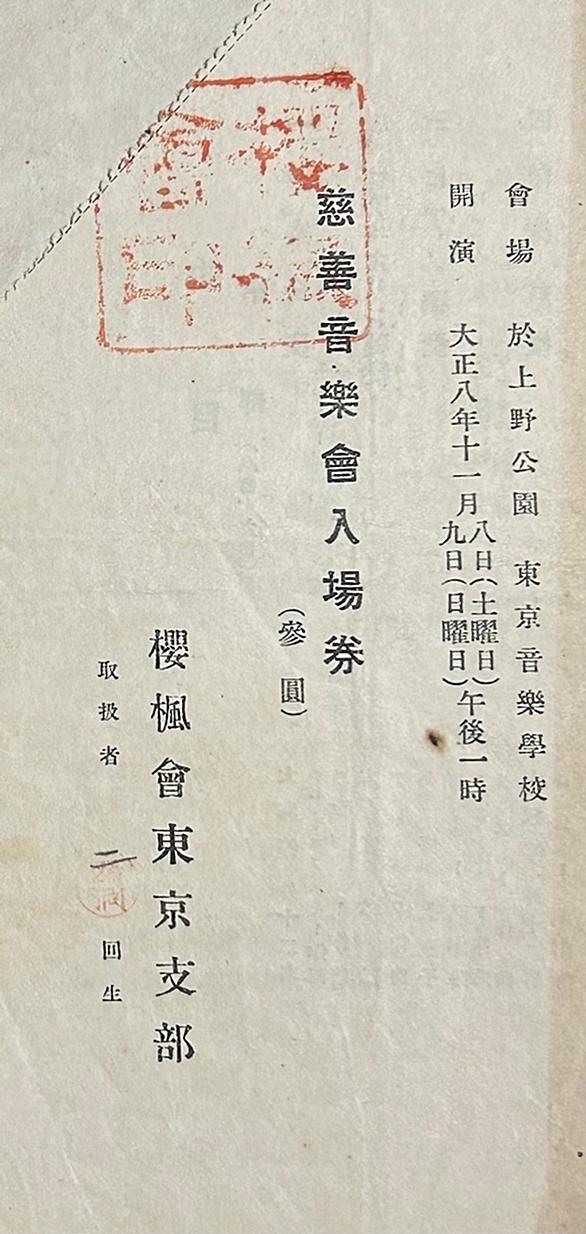 會場 於上野公園 東京音樂學校
開演 大正八年十一月八日(土曜日)九日(日曜日)午後一時
慈善音樂會入場券
(參圓)
櫻楓會東京支部
取扱者 二回生